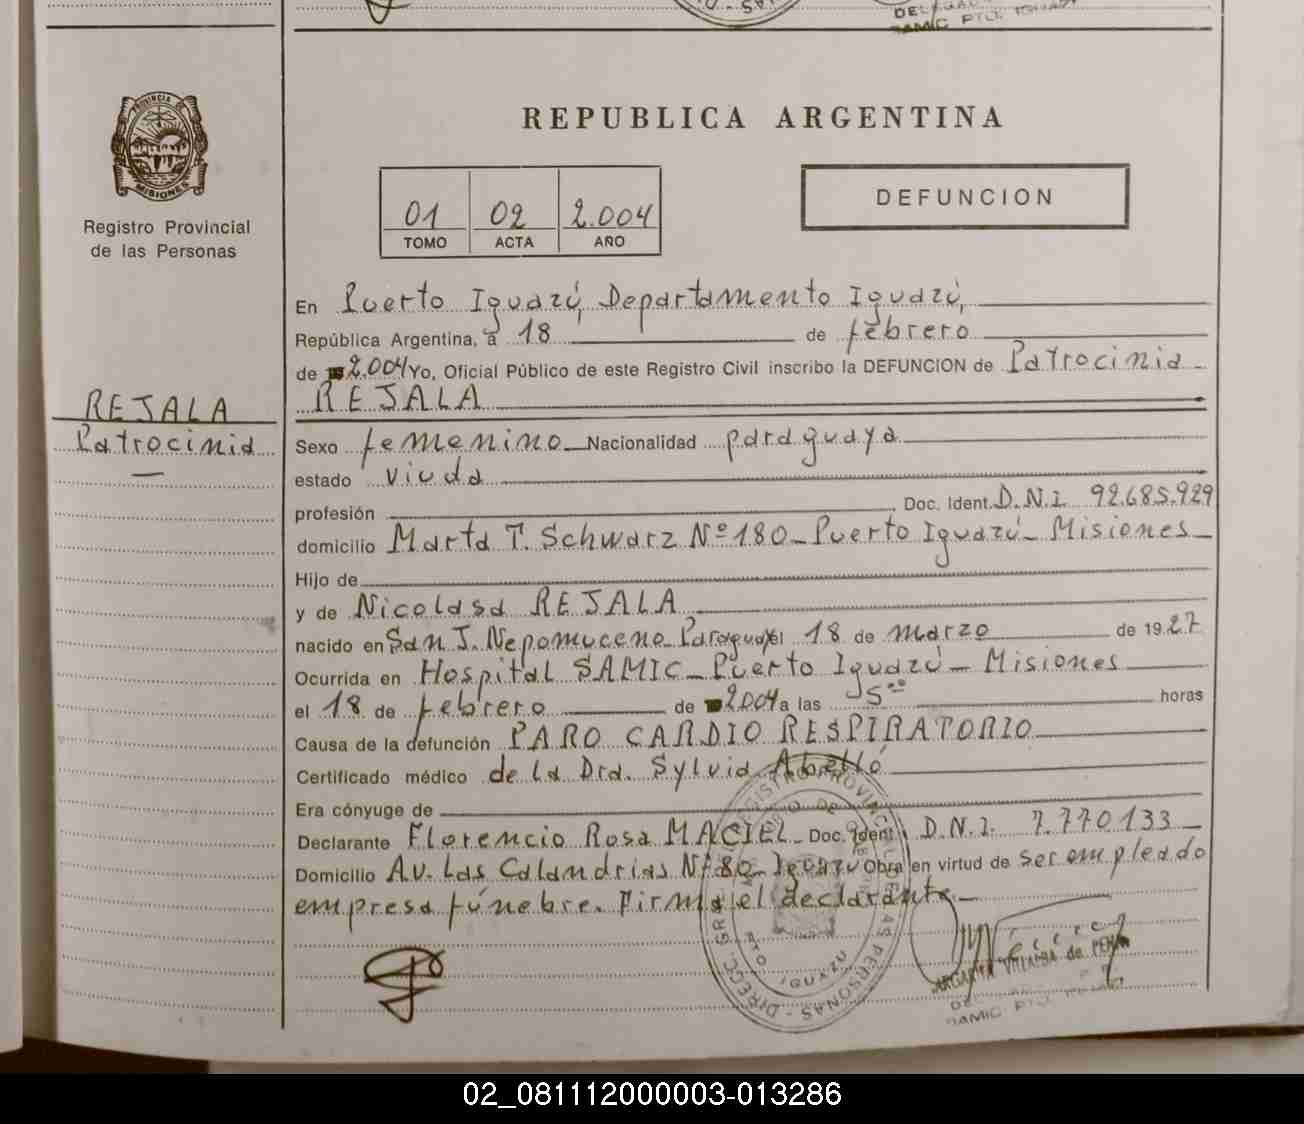 REPUBLICA ARGENTINA
PROVINCIA DE
MISIONES
Registro Provincial
de las Personas
01 02 2.004
TOMO ACTA AÑO
DEFUNCION
En Puerto Iguazú, Departamento Iguazú,
República Argentina, a 18 de febrero
de 2.004 Yo, Oficial Público de este Registro Civil inscribo la DEFUNCION de Patrocinia
REJALA
REJALA
Patrocinia
Sexo femenino Nacionalidad paraguaya
estado viuda
profesión Doc. Ident. D.N.I. 92.685.929
domicilio Marta T. Schwarz Nº 180 - Puerto Iguazú - Misiones
Hijo de
y de Nicolasa REJALA
nacido en San J. Nepomuceno - Paraguay el 18 de marzo de 1927
Ocurrida en Hospital SAMIC - Puerto Iguazú - Misiones
el 18 de febrero de 2004 a las 5⁰⁰ horas
Causa de la defunción PARO CARDIO RESPIRATORIO
Certificado médico de la Dra. Sylvia Abelló
Era cónyuge de
Declarante Florencio Rosa MACIEL - Doc. Ident. D.N.I. 7.770.133
Domicilio Av. Las Calandrias Nº 80 - Iguazú Obra en virtud de ser empleado
empresa fúnebre. Firma el declarante.
02_081112000003-013286